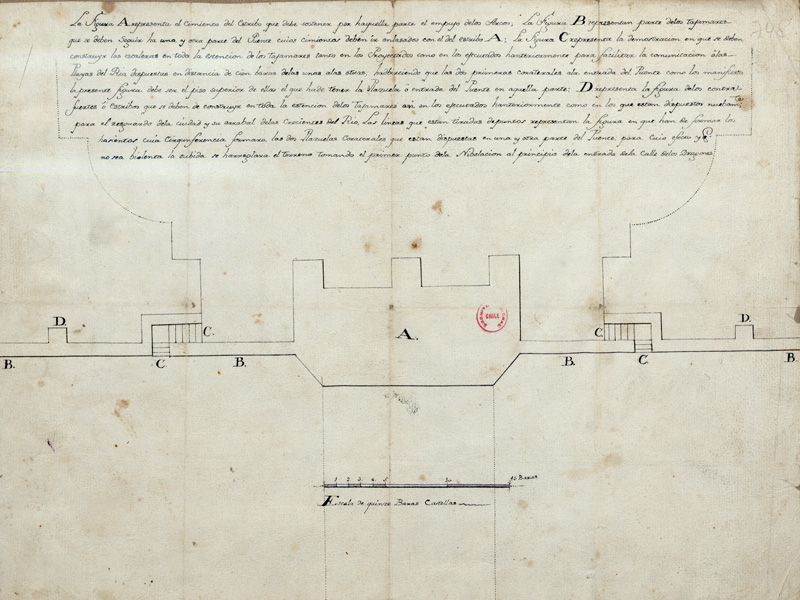 La Figura A representa el Cimiento del Estribo que debe sostener por haquella parte el empujo delos Arcos; La Figura B representan parte delos Tajamares
que se deben seguir ha una y otra parte del Puente cuios cimientos deben ir enlasados con el del estribo A; La Figura C representa la demostracion en que se deben
construyr las escaleras en toda la estencion de los Tajamares tanto en los Proyectados como en los efectuados hanteriormente para facilitar la comunicacion álas
Playas del Rio dispuestas en distancia de cien baras delas unas alas otras, haduciendo que las dos primeras coraterales ala entrada del Puente como los manifiesta
la presente figura, debe ser el piso superior de ellas el que hade tener la Plazuela ó entrada del Puente en aquella parte; D representa la figura delos contra
fuertes ó Estribos que se deben de construye en toda la estencion delos Tajamares asi en los efectuados hanteriormente como en los que estan dispuestos nuebamte
para el resguardo dela ciudad y su arrabal delas Crecientes del Rio, Las lineas que estan tiradas depuntos representan la figura en que han de formar los
hasientos cuia Circunferencia formara, las dos Plazuelas Coraterales que estan dispuestas en una y otra parte del Puente, para cuio efecto y q
no sea biolenta la subida se harreglara el terreno tomando el primer punto dela Nibelacion al principio dela entrada dela Calle delos Dragones
D.
C.
A.
CHILE
C.
D.
B.
C
B.
B.
C
B.
1 2 3 4 5 10 15 Baras
Escala de quinze Baras Castellas